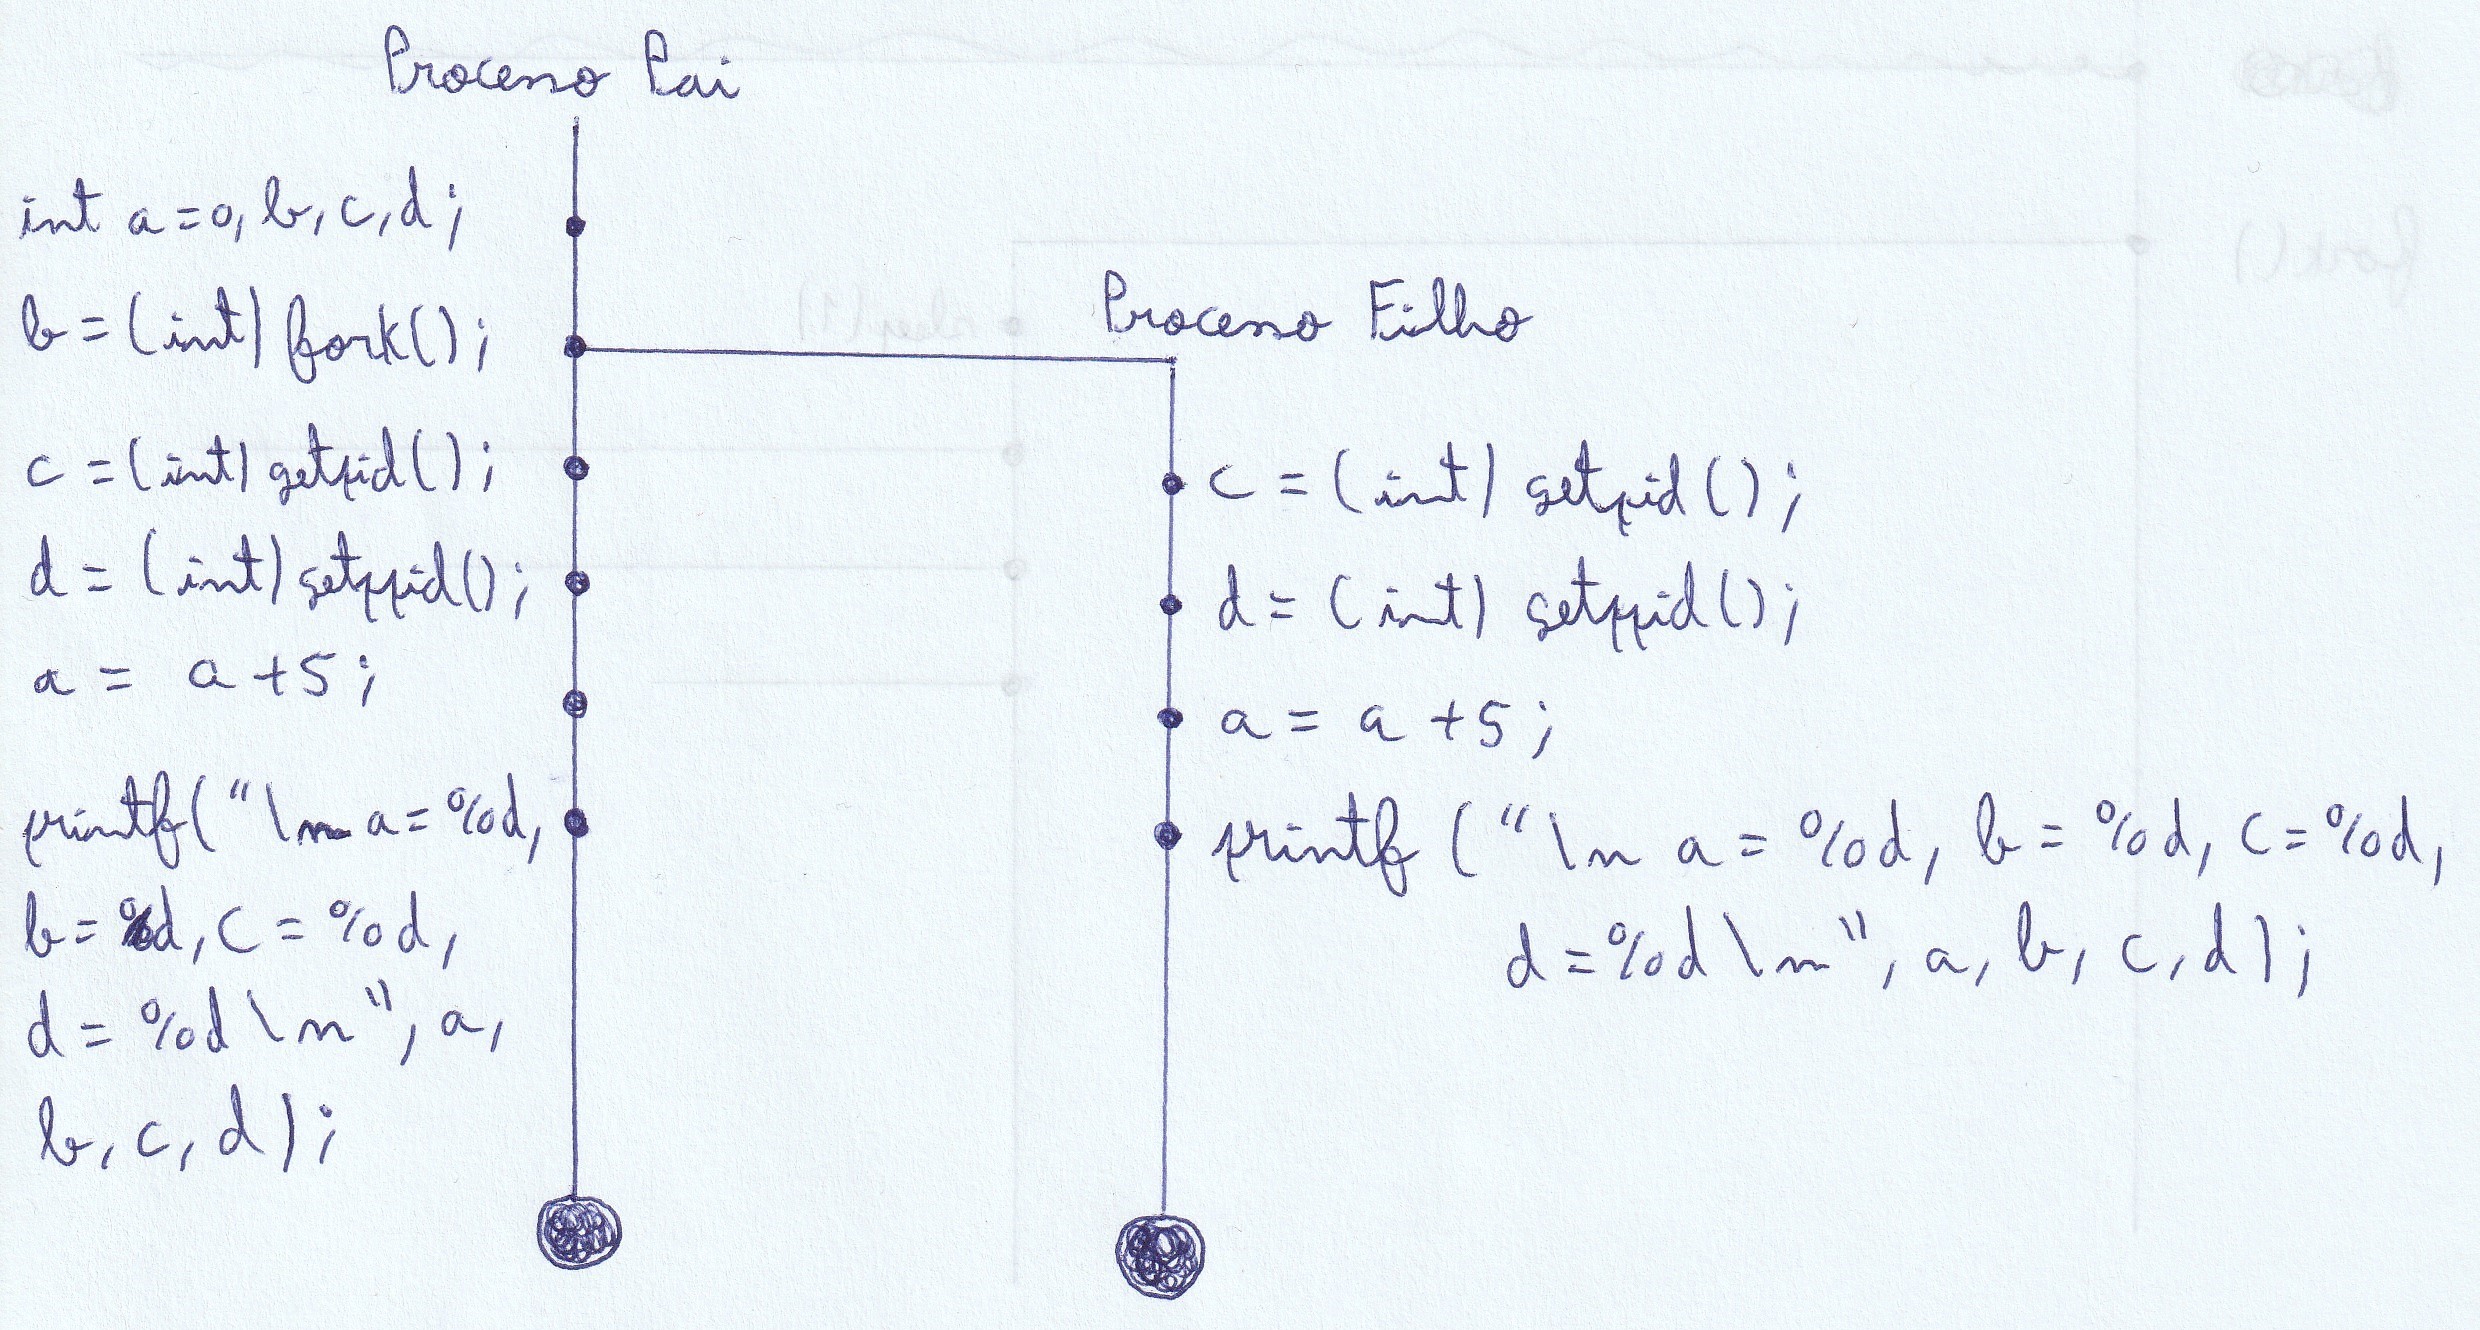 Processo Pai
int a=0, b, c, d;
b = (int) fork();
c = (int) getpid();
d = (int) getppid();
a = a +5;
printf("\n a = %d,
b = %d, c = %d,
d = %d \n", a,
b, c, d);
Processo Filho
c = (int) getpid();
d = (int) getppid();
a = a +5;
printf ("\n a = %d, b = %d, c = %d,
d = %d \n", a, b, c, d);
fork()
sleep(1)